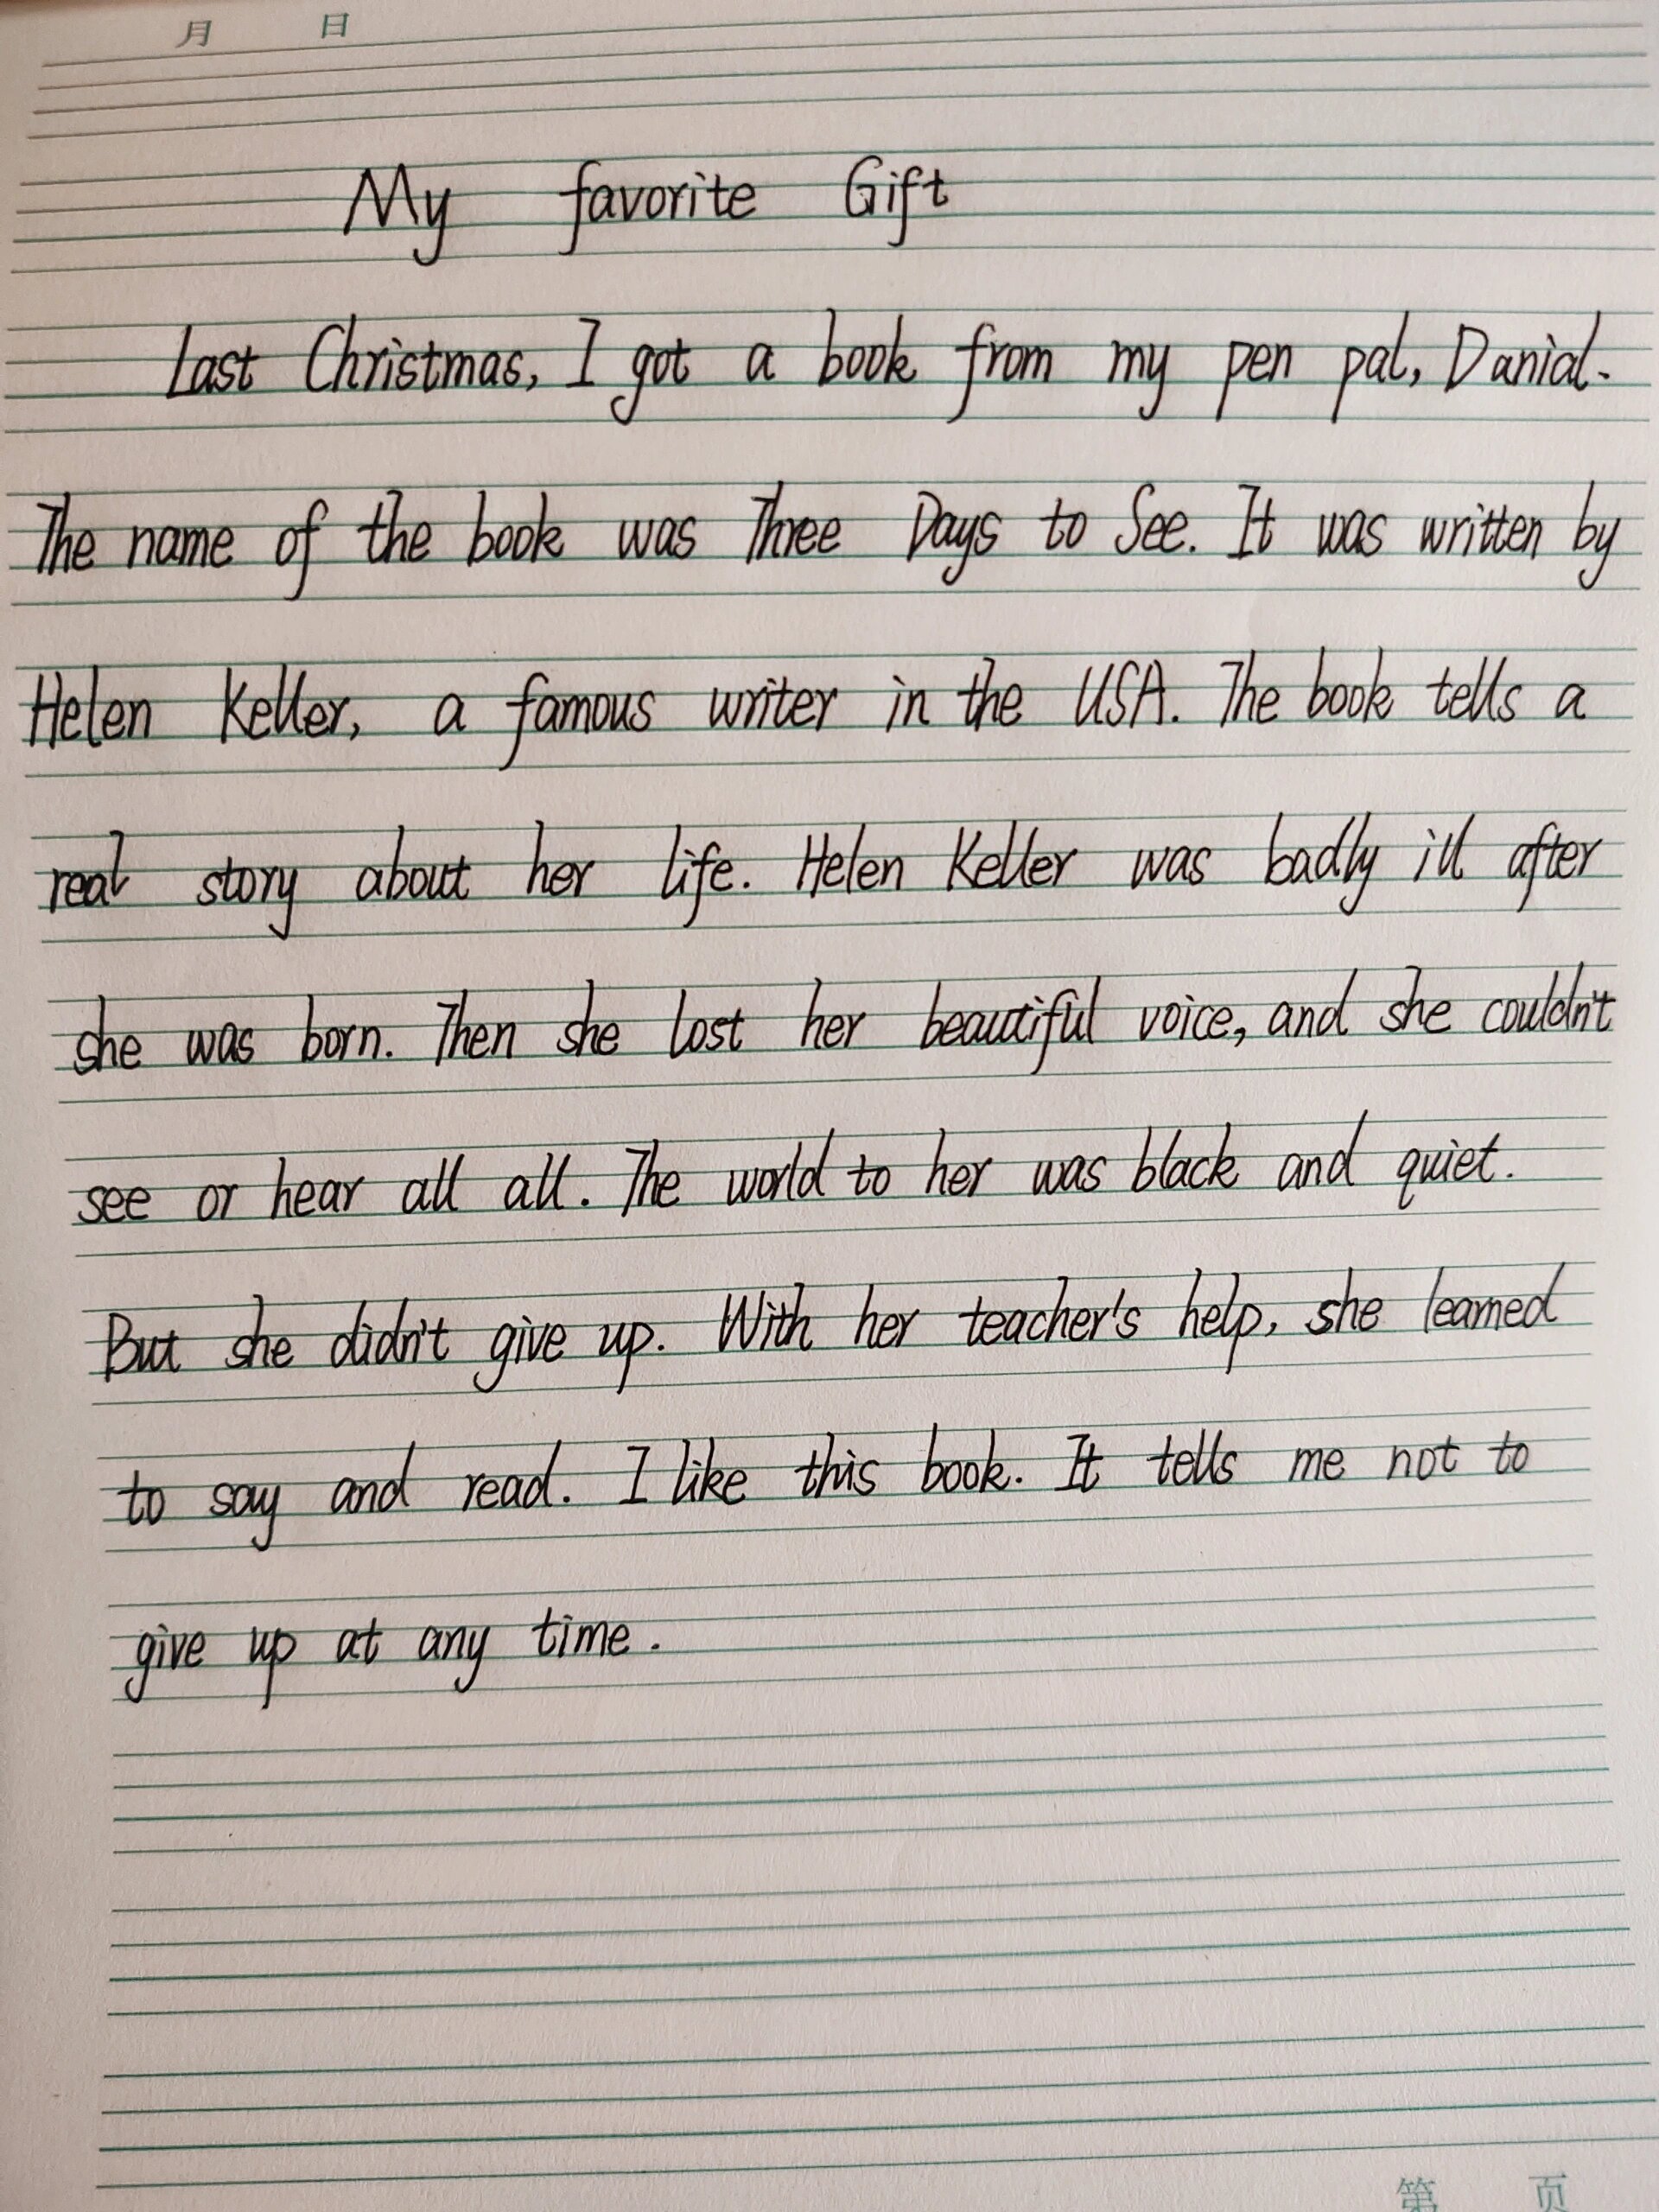 月 日
My favorite Gift
Last Christmas, I got a book from my pen pal, Danial.
The name of the book was Three Days to See. It was written by
Helen Keller, a famous writer in the USA. The book tells a
real story about her life. Helen Keller was badly ill after
she was born. Then she lost her beautiful voice, and she couldn't
see or hear all all. The world to her was black and quiet.
But she didn't give up. With her teacher's help, she learned
to say and read. I like this book. It tells me not to
give up at any time.
第 页